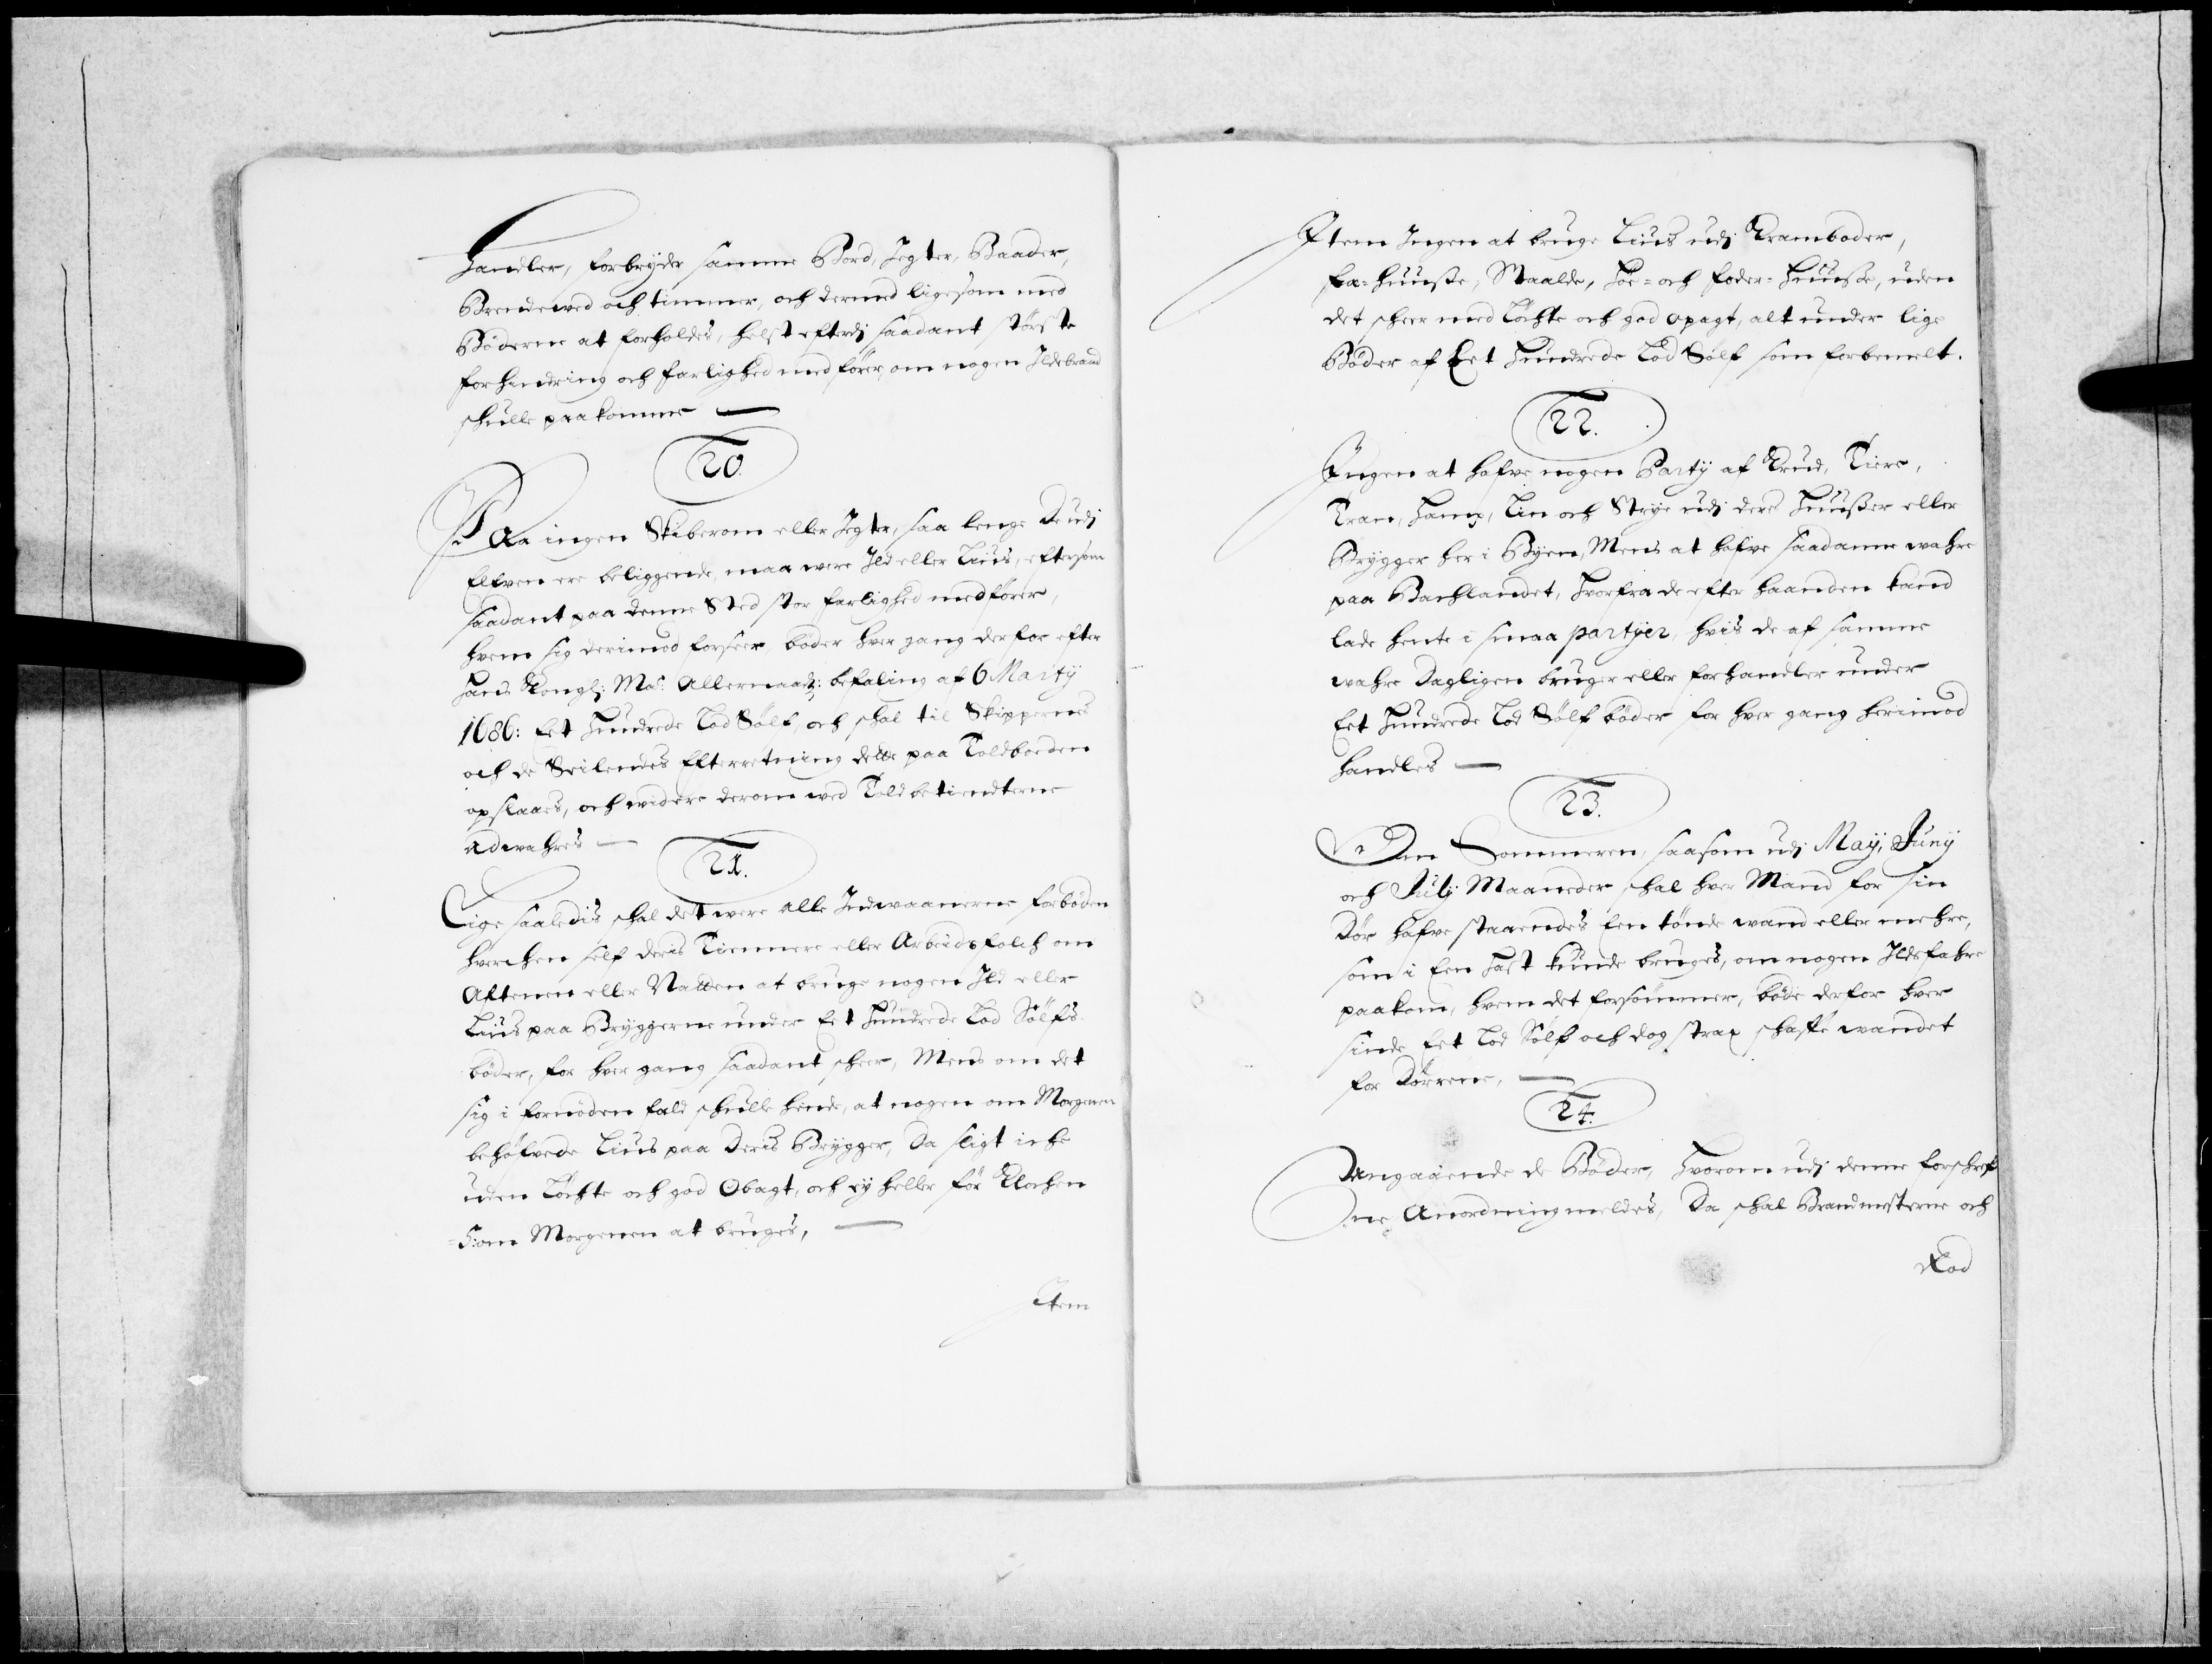 Handler, forbryder samme Bord, Jegter, Baader,
Brendewed och timmer, och dermed ligesom med
Böderne at forholdes, helst efterdj saadant störste
forhindring och farlighed medförer, om nogen Ildebrand
schulle paakomme
20.
Paa ingen Skiberom eller Jegter, saa lenge De udj
Elfven ere beliggende, maa were Ild eller Liüs, eftersom
saadant paa denne Sted stor farlighed medförer,
hvem sig derimod forseer böder hver gang derfor efter
Hans Kongl: Maÿ: Allernaadz: befaling af 6 Martÿ
1686: Eet Hundrede Lod Sölf, och schal til Skippernes
och de Seilendes Efterretning dette paa Toldboeden
opslaaes, och widere derom wed Toldbetiendterne
adwahres
21.
Lige saaledis schal det were alle Indwaanerne forböden
hverchen self deris Tiennere eller Arbeidsfolch om
Aftenen eller Natten at bruge nogen Ild eller
Liüs paa Bryggerne under Eet Hundrede Lod Sölfs
böder, for hver gang saadant scheer, Mens om det
sig i fornöden fald schulle hende, at nogen om Morgenen
behöfvede Liüs paa Deris Brygger, Da sligt iche
uden Löchte och god Obagt, och eÿ heller för Klochen
5: om Morgenen at bruges,
Item
Item Ingen at bruge Liüs udj Kramboder,
fæ-huuse, Staalde, Höe- och foder-Huuse, uden
det scheer med Löchte och god opagt, alt under lige
Böder af Eet Hundrede Lod Sölf som forbemelt.
22.
Ingen at hafve nogen Partÿ af Krud, Tiere,
Tran, Hamp, Lin och Strÿe udj deres Huuser eller
Brygger her i Bÿen, Mens at hafve saadanne wahre
paa Bachlandet, Hvorfra de efter haanden kand
lade hente i smaa partÿer, hvis de af samme
wahre Dagligen bruger eller forhandler under
Eet Hundrede Lod Sölf böder for hver gang herimod
handles
23.
Om Sommeren, saasom udj Maÿ, Junÿ
och Julÿ Maaneder schal hver Mand for sin
Dör hafve staaendes Een tönde wand eller mehre,
som i Een Hast kunde bruges, om nogen Ildsfahre
paakom, hvem det forsömmer, böde derfor hver
sinde Eet Lod Sölf och dog strax schaffe wandet
for Dörrene,
24.
Angaaende de Böder, Hvorom udj denne forschref
ne Anordning meldes, Da schal Brandmesterne och
Rod